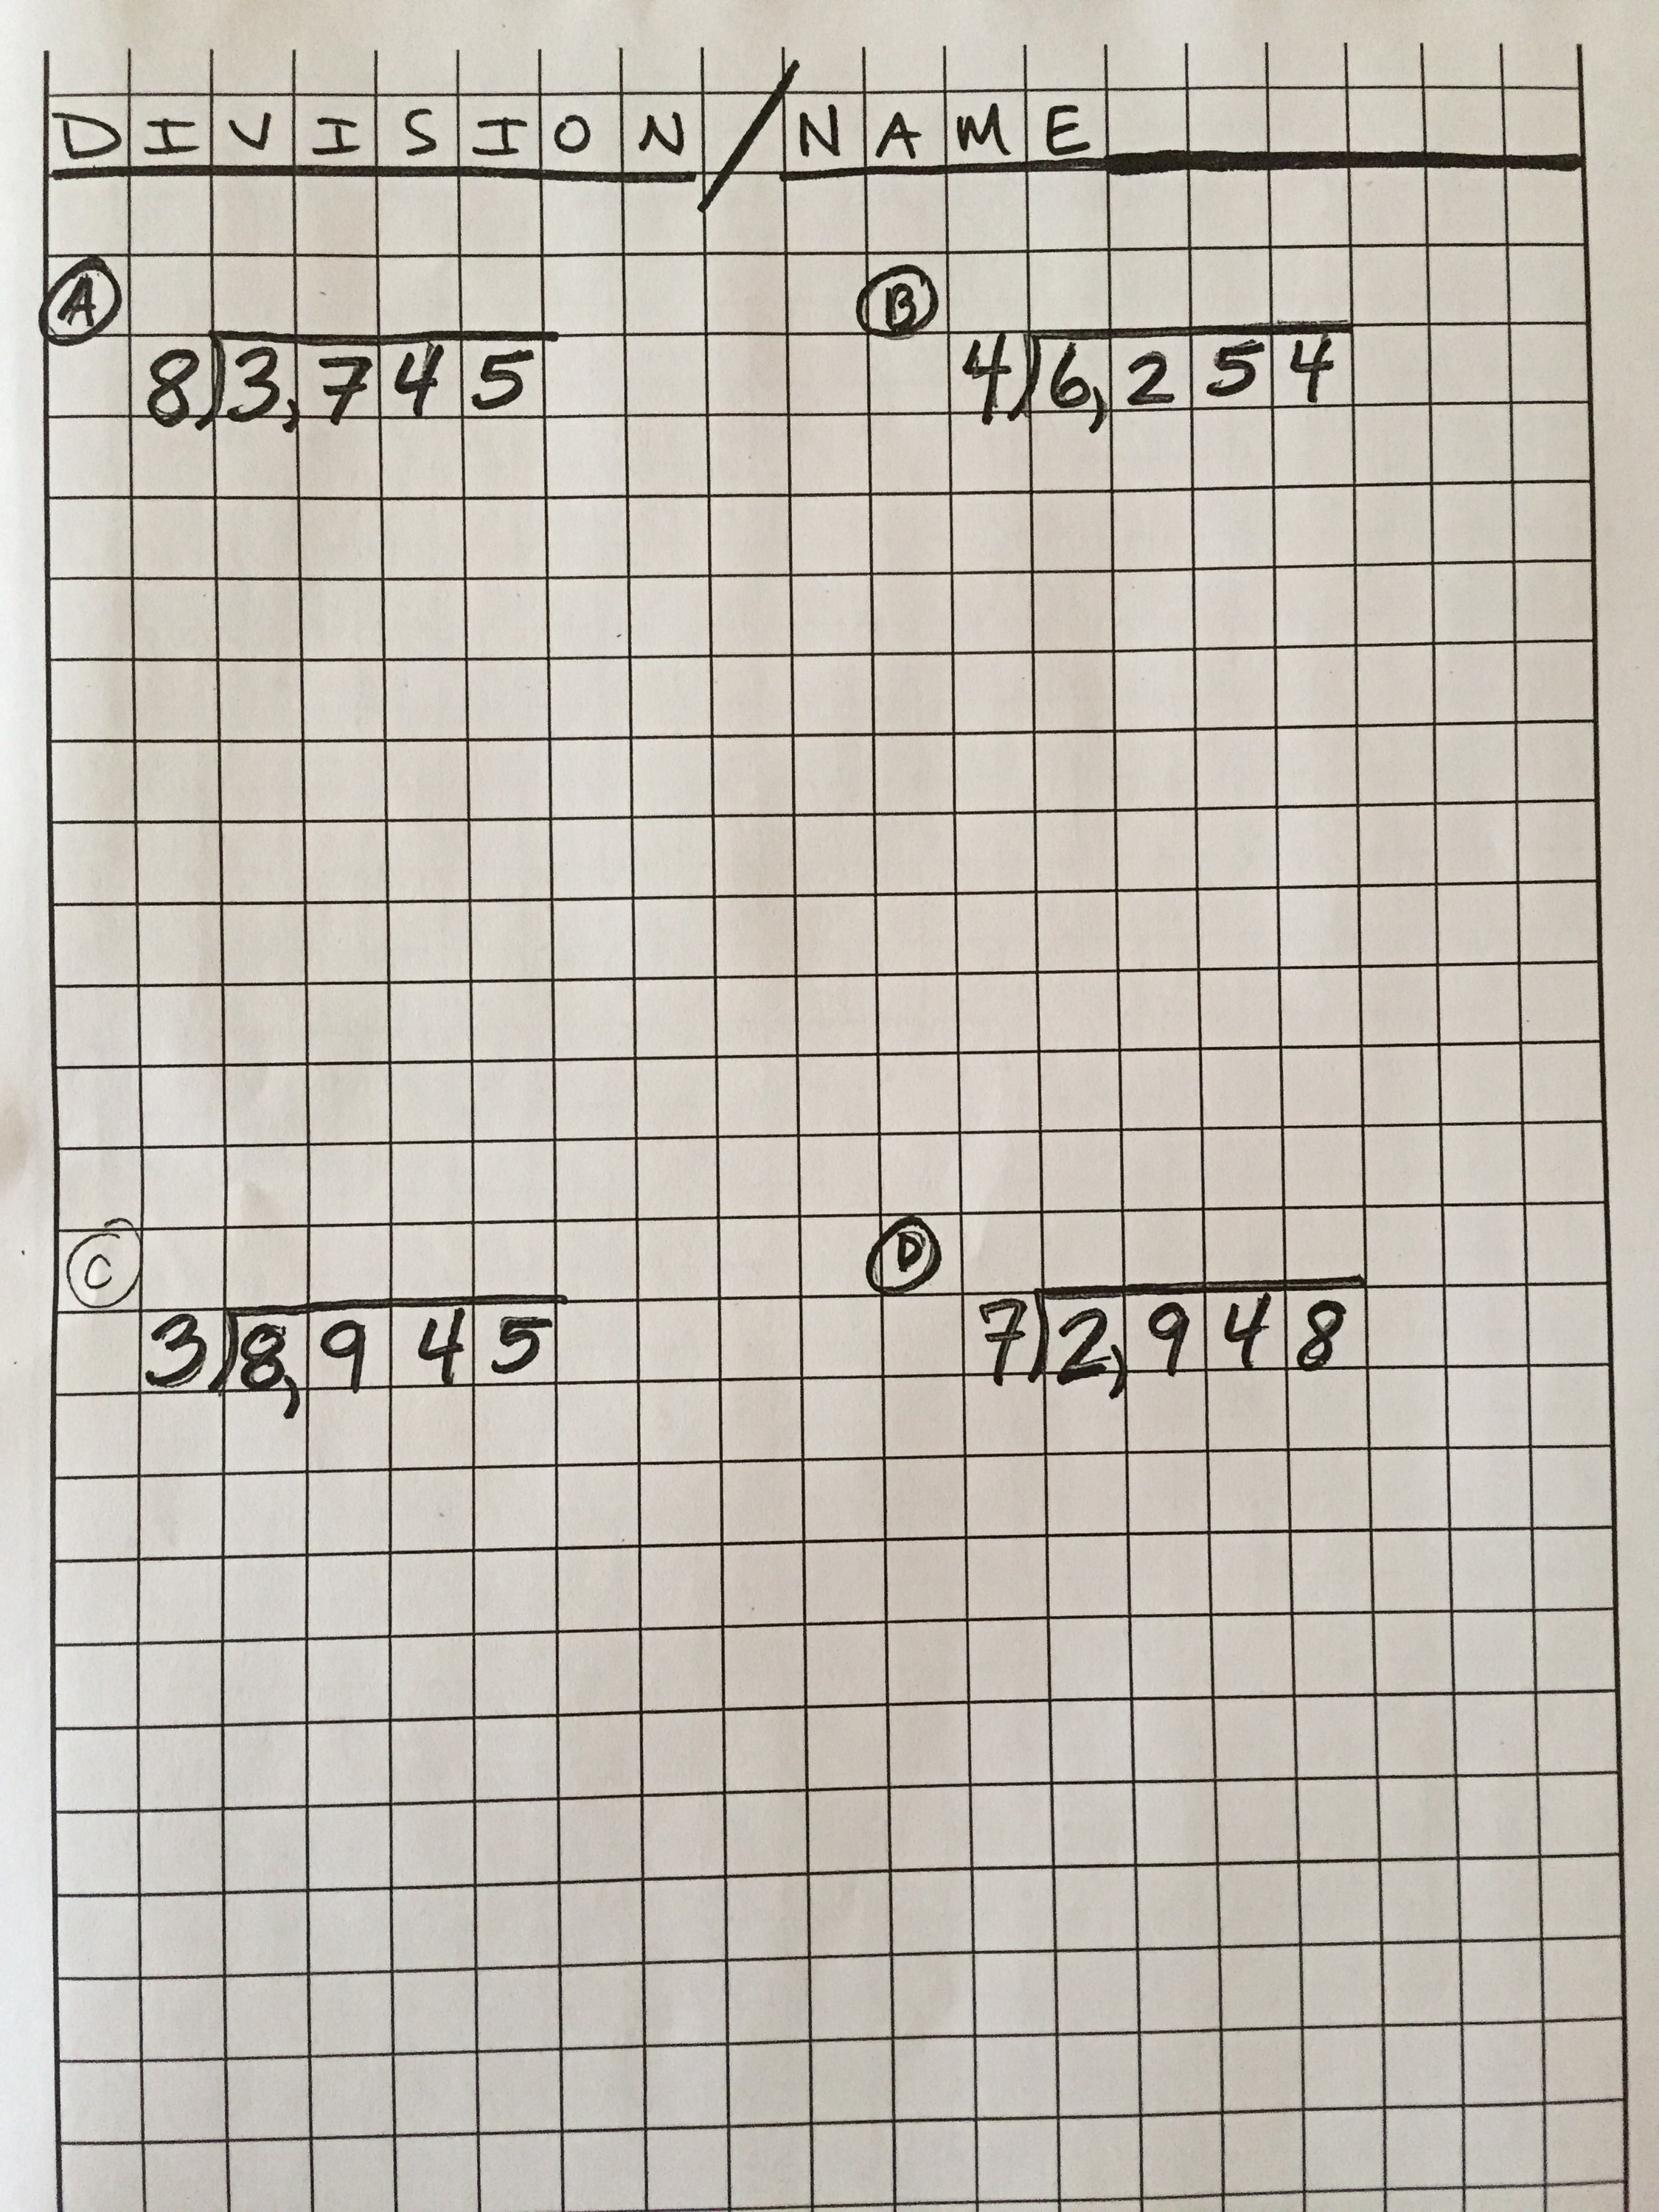 DIVISION / NAME
A B
8)3,745 4)6,254
C D
3)8,945 7)2,948